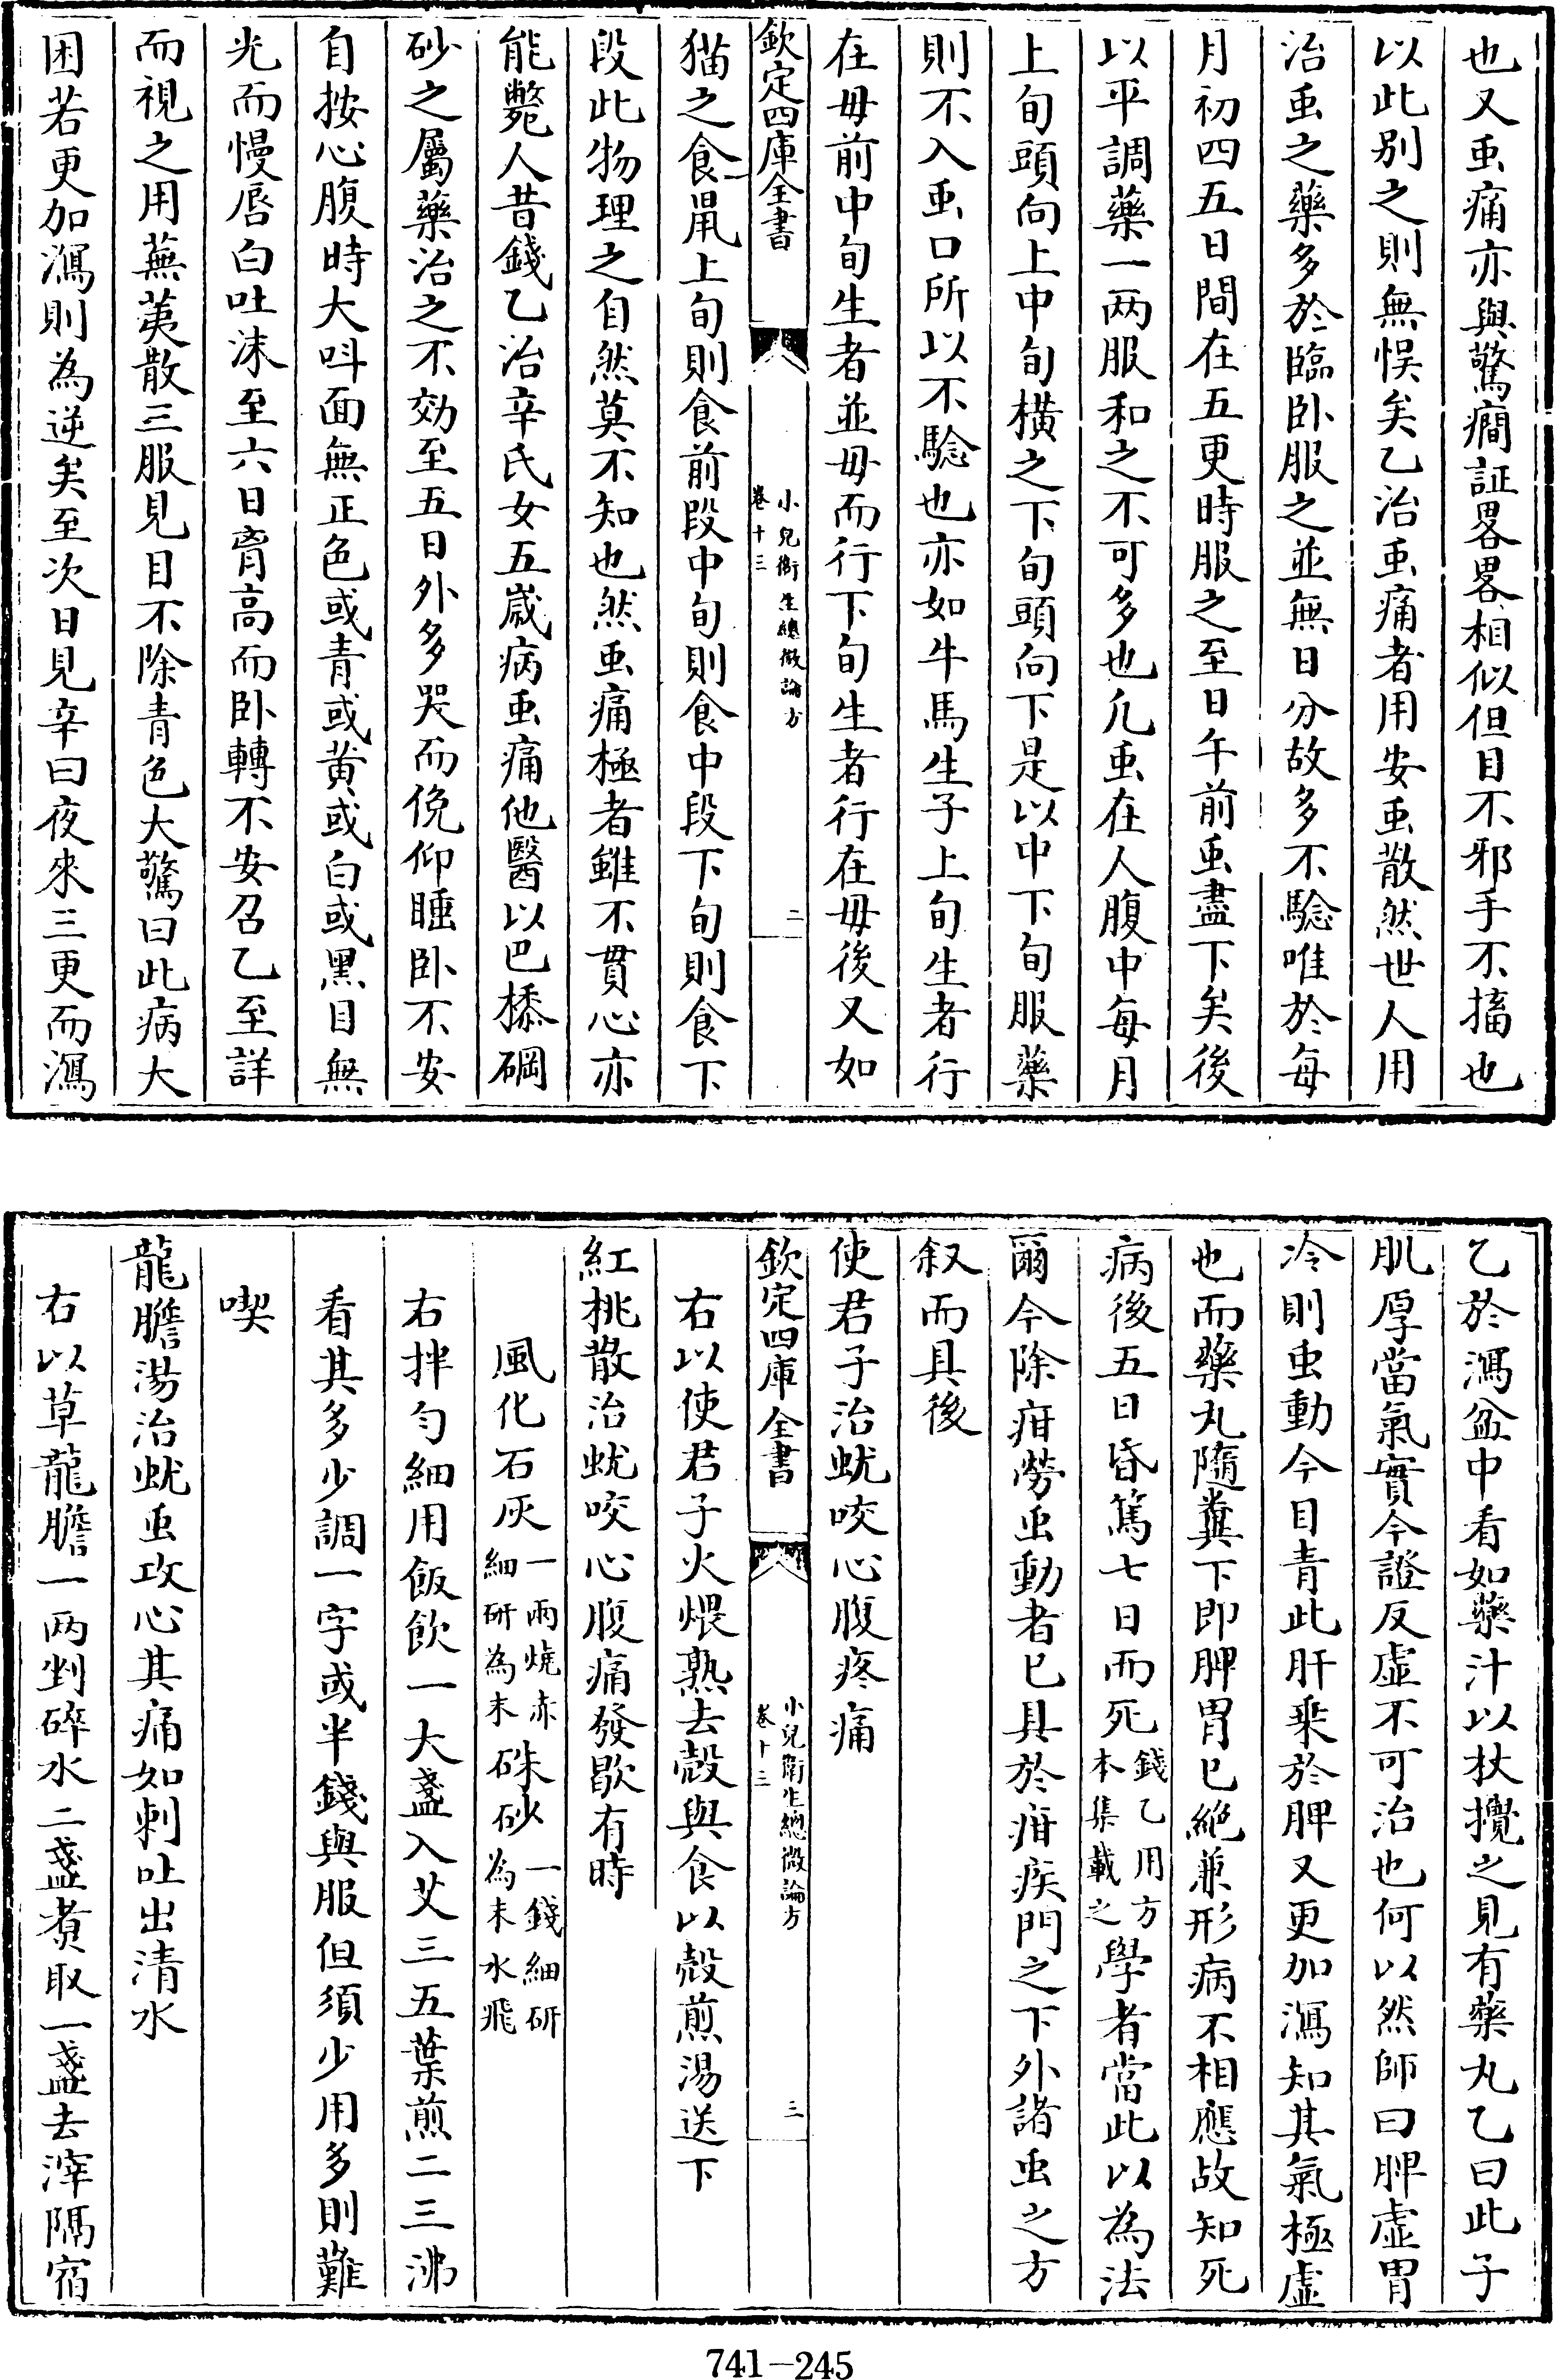 也又䖝痛亦與驚癎証畧畧相似但目不邪手不搐也
以此别之則無悞矣乙治䖝痛者用安䖝散然世人用
治䖝之藥多於臨卧服之並無日分故多不騐唯於每
月初四五日間在五更時服之至日午前䖝盡下矣後
以平調藥一两服和之不可多也凢䖝在人腹中每月
上旬頭向上中旬横之下旬頭向下是以中下旬服藥
則不入䖝口所以不騐也亦如牛馬生子上旬生者行
在毋前中旬生者並毋而行下旬生者行在毋後又如
欽定四庫全書
小兒衛生總微論方
卷十三
二
猫之食鼠上旬則食前段中旬則食中段下旬則食下
段此物理之自然莫不知也然䖝痛極者雖不貫心亦
能斃人昔錢乙治辛氏女五嵗病䖝痛他醫以巴𣐈硇
砂之屬藥治之不効至五日外多哭而俛仰睡卧不安
自按心腹時大呌面無正色或青或黄或白或黑目無
光而慢唇白吐沫至六日胷高而卧轉不安召乙至詳
而視之用蕪荑散三服見目不除青色大驚曰此病大
困若更加瀉則為逆矣至次日見辛曰夜來三更而瀉
乙於瀉盆中看如藥汁以杖攪之見有藥丸乙曰此子
肌厚當氣實今證反虚不可治也何以然師曰脾虚胃
冷則虫動今目青此肝乘於脾又更加瀉知其氣極虚
也而藥丸隨糞下即脾胃已絶兼形病不相應故知死
病後五日昏篤七日而死錢乙用方本集載之學者當此以為法
爾今除疳勞虫動者已具於疳疾門之下外諸虫之方
叙而具後
使君子治蚘咬心腹疼痛
欽定四庫全書
小兒衛生總微論方
卷十三
三
右以使君子火煨熟去殼與食以殼煎湯送下
紅桃散治蚘咬心腹痛發歇有時
風化石灰一兩燒赤細研為末硃砂一錢細研為末水飛
右拌勻細用飯飲一大盞入艾三五葉煎二三沸
看其多少調一字或半錢與服但須少用多則難
喫
龍膽湯治蚘䖝攻心其痛如刺吐出清水
右以草龍膽一两剉碎水二盞煑取一盞去滓隔宿
741—245